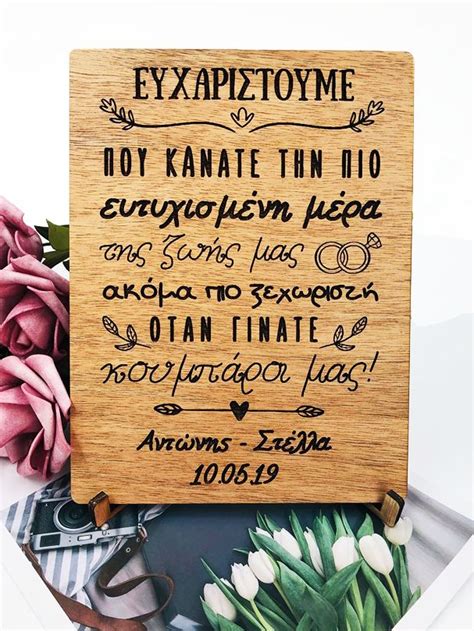 ΕΥΧΑΡΙΣΤΟΥΜΕ
ΠΟΥ ΚΑΝΑΤΕ ΤΗΝ ΠΙΟ
ευτυχισμένη μέρα
της ζωής μας
ακόμα πιο ξεχωριστή
ΟΤΑΝ ΓΙΝΑΤΕ
κουμπάροι μας!
Αντώνης - Στέλλα
10.05.19